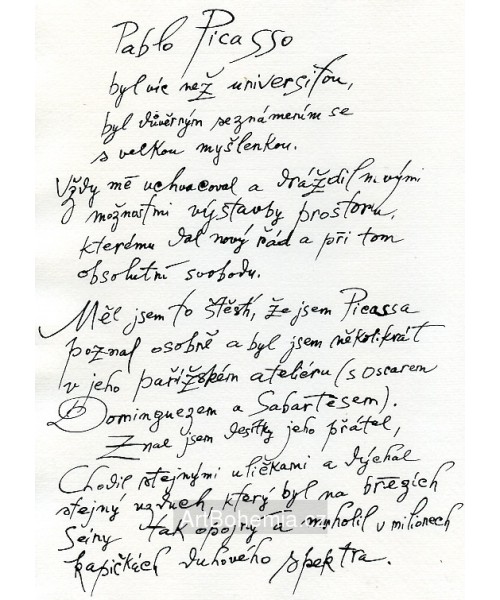 Pablo Picasso
byl víc než universitou,
byl důvěrným seznámením se
s velkou myšlenkou.
Vždy mě uchvacoval a dráždil novými
možnostmi výstavby prostoru,
kterému dal nový řád a při tom
absolutní svobodu.
Měl jsem to štěstí, že jsem Picassa
poznal osobně a byl jsem několikrát
v jeho pařížském ateliéru (s Oscarem
Dominguezem a Sabartésem).
Znal jsem desítky jeho přátel,
Chodil stejnými uličkami a dýchal
stejný vzduch který byl na březích
Seiny tak opojný a mrholil v milionech
kapičkách duhového spektra.
ArtBohemia.cz